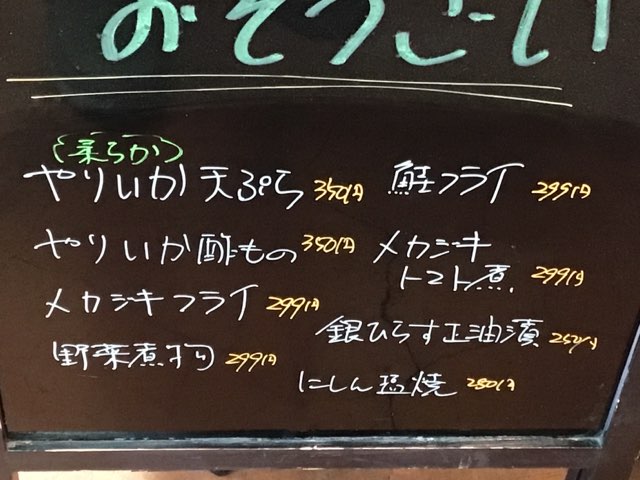 おそうざい
(柔らか)
やりいか天ぷら 350円
やりいか酢もの 350円
メカジキフライ 299円
野菜煮物 299円
鮭フライ 299円
メカジキ
トマト煮 299円
銀ひらす正油漬
にしん塩焼 280円